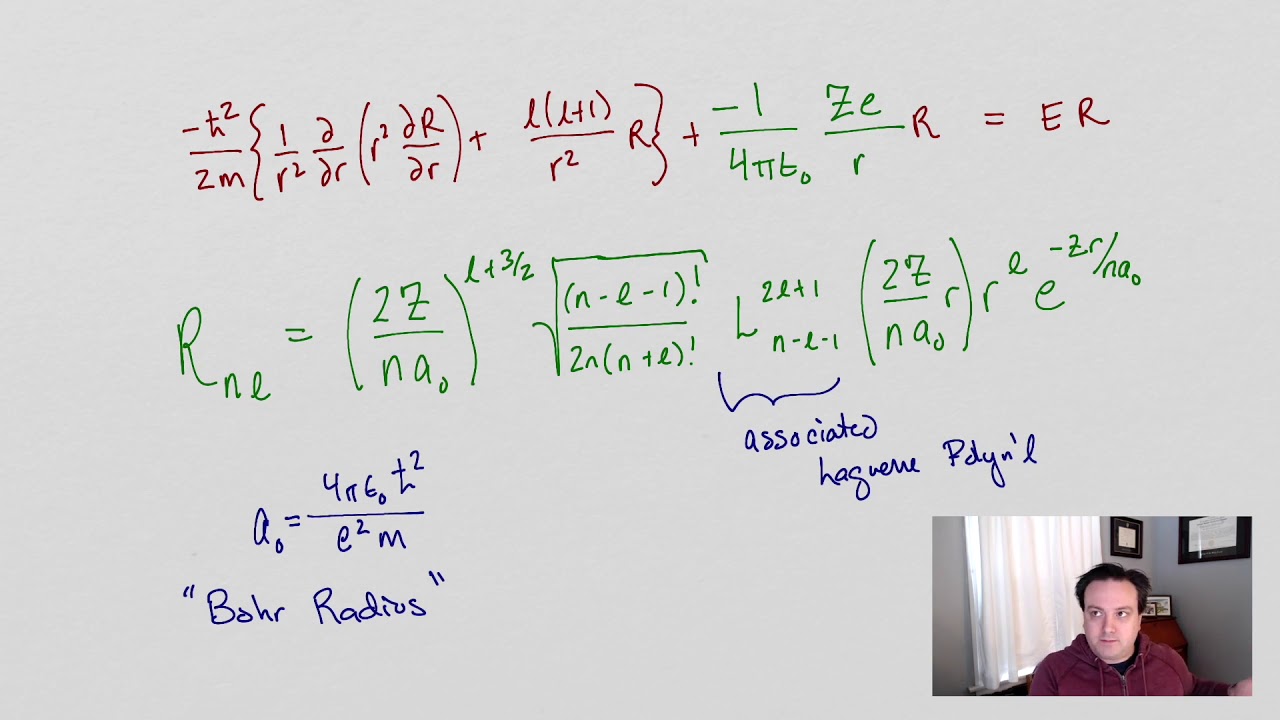 -ħ²/2m {1/r² ∂/∂r (r² ∂R/∂r) + l(l+1)/r² R} + -1/4πε₀ Ze/r R = ER
Rₙₗ = (2Z/na₀)^(l+3/2) √((n-l-1)!/2n(n+l)!) L^(2l+1)_(n-l-1) (2Z/na₀ r) r^l e^(-Zr/na₀)
associated
Laguerre Polyn'l
a₀ = 4πε₀ħ²/e²m
"Bohr Radius"